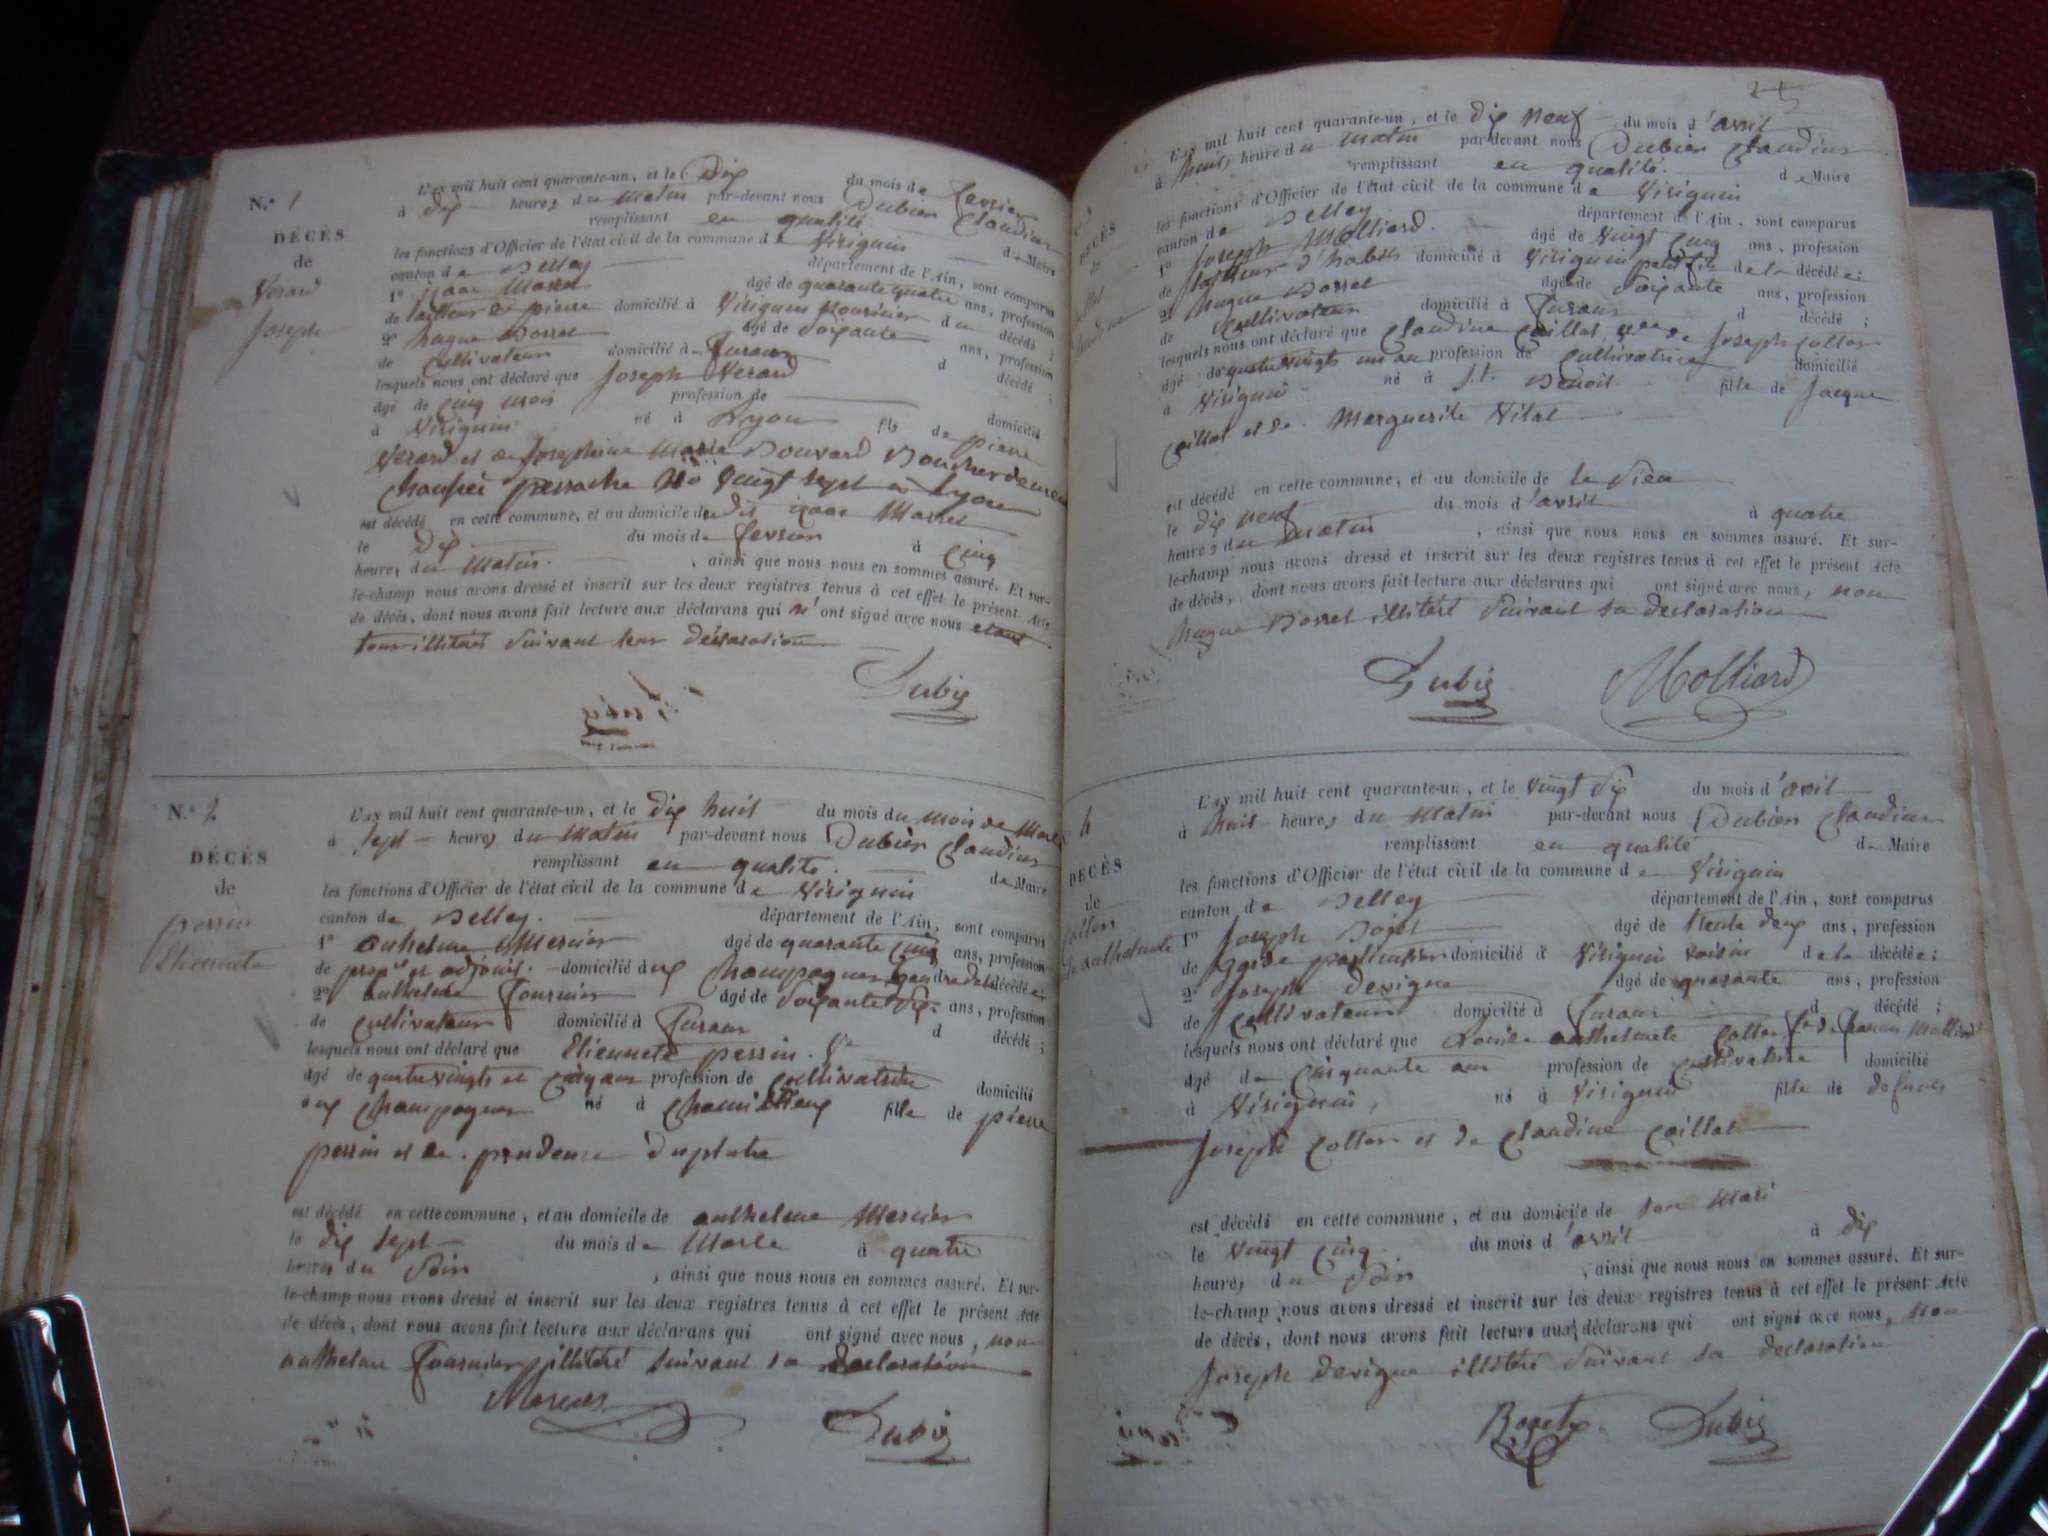 N.° 1
DÉCÈS
de
Verard
Joseph
L'an mil huit cent quarante-un, et le Dix du mois de fevrier
à dix heures du matin par-devant nous Dubien Claudius
remplissant en qualité de Maire
les fonctions d'Officier de l'état civil de la commune de Virignin
canton de Belley département de l'Ain, sont comparus
1° isaac Marret âgé de quarante quatre ans, profession
de tailleur de pierre domicilié à Virignin nourricier du décédé ;
2° hugue Borret âgé de soixante ans, profession
de cultivateur domicilié à furans d décédé ;
lesquels nous ont déclaré que Joseph Verard
âgé de cinq mois profession de domicilié
à Virignin né à Lyon fils de pierre
Verard et de Josephine Marie Bouvard
perrache N° vingt sept à Lyon
est décédé en cette commune, et au domicile de dit isaac Marret
le Dix du mois de fevrier à cinq
heures du Matin , ainsi que nous nous en sommes assuré. Et sur-
le-champ nous avons dressé et inscrit sur les deux registres tenus à cet effet le présent Acte
de décès, dont nous avons fait lecture aux déclarans qui n'ont signé avec nous etant
tous illitérés suivant leur déclaration
Dubien
N.° 2
DÉCÈS
de
perrin
Etiennete
L'an mil huit cent quarante-un, et le dix huit du mois du mois de Mars
à sept heures du Matin par-devant nous Dubien Claudius
remplissant en qualité de Maire
les fonctions d'Officier de l'état civil de la commune de Virignin
canton de Belley département de l'Ain, sont comparus
1° anthelme Mercier âgé de quarante cinq ans, profession
de prop.re et adjoint domicilié aux Champagnes gendre de la décédée
2° anthelme fournier âgé de soixante dix ans, profession
de cultivateur domicilié à furans d décédé ;
lesquels nous ont déclaré que Etiennete perrin V.e
âgé de quatrevingts et cinq ans profession de cultivatrice domicilié
aux Champagnes né à fille de pierre
perrin et de prudence Duplatre
est décédé en cette commune, et au domicile de anthelme Mercier
le dix sept du mois de Mars à quatre
heures du Soir , ainsi que nous nous en sommes assuré. Et sur-
le-champ nous avons dressé et inscrit sur les deux registres tenus à cet effet le présent Acte
de décès, dont nous avons fait lecture aux déclarans qui ont signé avec nous, non
anthelme fournier illitéré suivant sa declaration
Mercier
Dubien
DÉCÈS
de
L'an mil huit cent quarante-un, et le dix neuf du mois d'avril
à huit heure du matin par-devant nous Dubien Claudius
remplissant en qualité de Maire
les fonctions d'Officier de l'état civil de la commune de Virignin
canton de Belley département de l'Ain, sont comparus
1° Joseph Molliard. âgé de vingt cinq ans, profession
de tailleur d'habits domicilié à Virignin petit fils de la décédée ;
2° hugue Borret âgé de soixante ans, profession
de cultivateur domicilié à furans d décédé ;
lesquels nous ont déclaré que Claudine Caillat veuve de Joseph Cotten
âgé de quatrevingts un an profession de cultivatrice domicilié
à Virignin né à St. Benoit fille de Jacque
Caillat et de Marguerite Vital
est décédé en cette commune, et au domicile de le Sien
le dix neuf du mois d'avril à quatre
heures du matin , ainsi que nous nous en sommes assuré. Et sur-
le-champ nous avons dressé et inscrit sur les deux registres tenus à cet effet le présent Acte
de décès, dont nous avons fait lecture aux déclarans qui ont signé avec nous, non
hugue Borret illitéré suivant sa declaration
Dubien Molliard
4
DÉCÈS
de
Cotten
L'an mil huit cent quarante-un, et le vingt six du mois d'avril
à huit heures du Matin par-devant nous Dubien Claudius
remplissant en qualité de Maire
les fonctions d'Officier de l'état civil de la commune de Virignin
canton de Belley département de l'Ain, sont comparus
1° Joseph âgé de trente deux ans, profession
de garde particulier domicilié à Virignin voisin de la décédée ;
2° Joseph Devigne âgé de quarante ans, profession
de Cultivateur domicilié à furans d décédé ;
lesquels nous ont déclaré que Louise anthelmete Cotten
âgé de cinquante ans profession de cultivatrice domicilié
à Virignin, né à Virignin fille de defunts
Joseph Cotten et de Claudine Caillat
est décédé en cette commune, et au domicile de son Mari
le vingt cinq du mois d'avril à dix
heures du Soir , ainsi que nous nous en sommes assuré. Et sur-
le-champ nous avons dressé et inscrit sur les deux registres tenus à cet effet le présent Acte
de décès, dont nous avons fait lecture aux déclarans qui ont signé avec nous, non
Joseph Devigne illitéré suivant sa declaration
Dubien